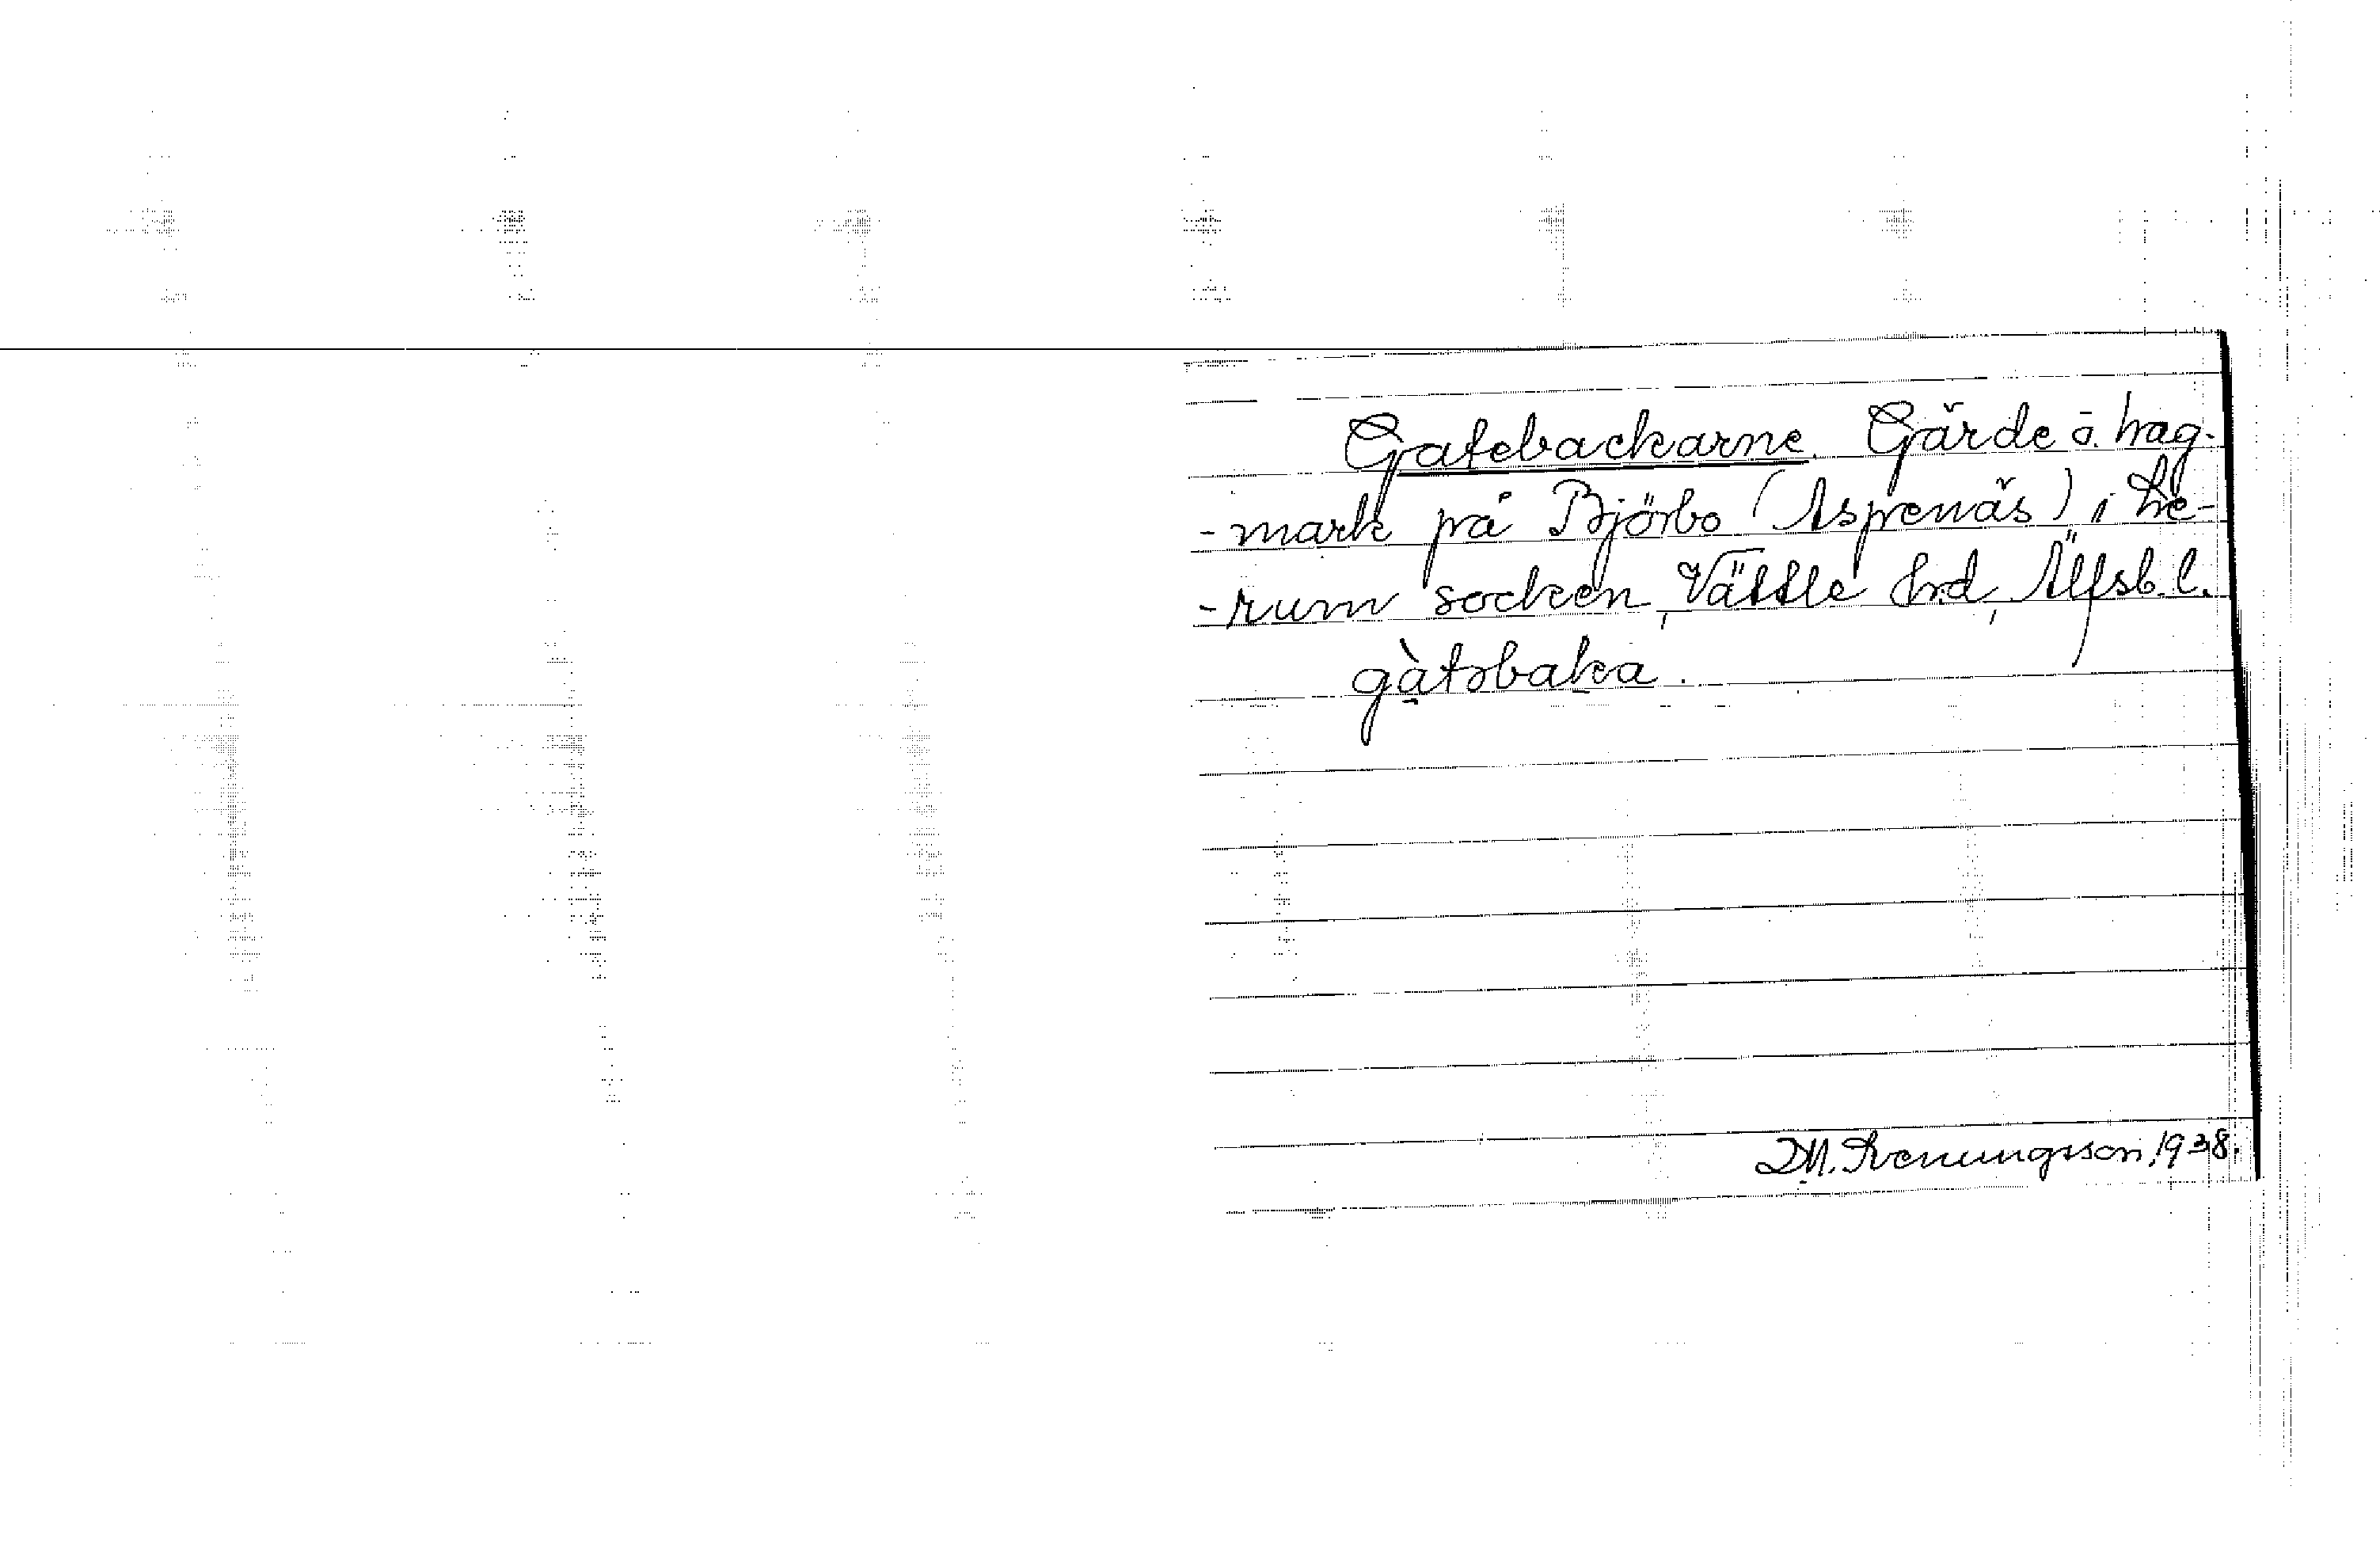 Gatebackarne. Gärde o. hag-
-mark på Björbo (Aspenäs) i Le-
-rum socken, Vättle hrd, Älfsb. l.
gàtsbaka.
D.M. Svenungsson, 1938.